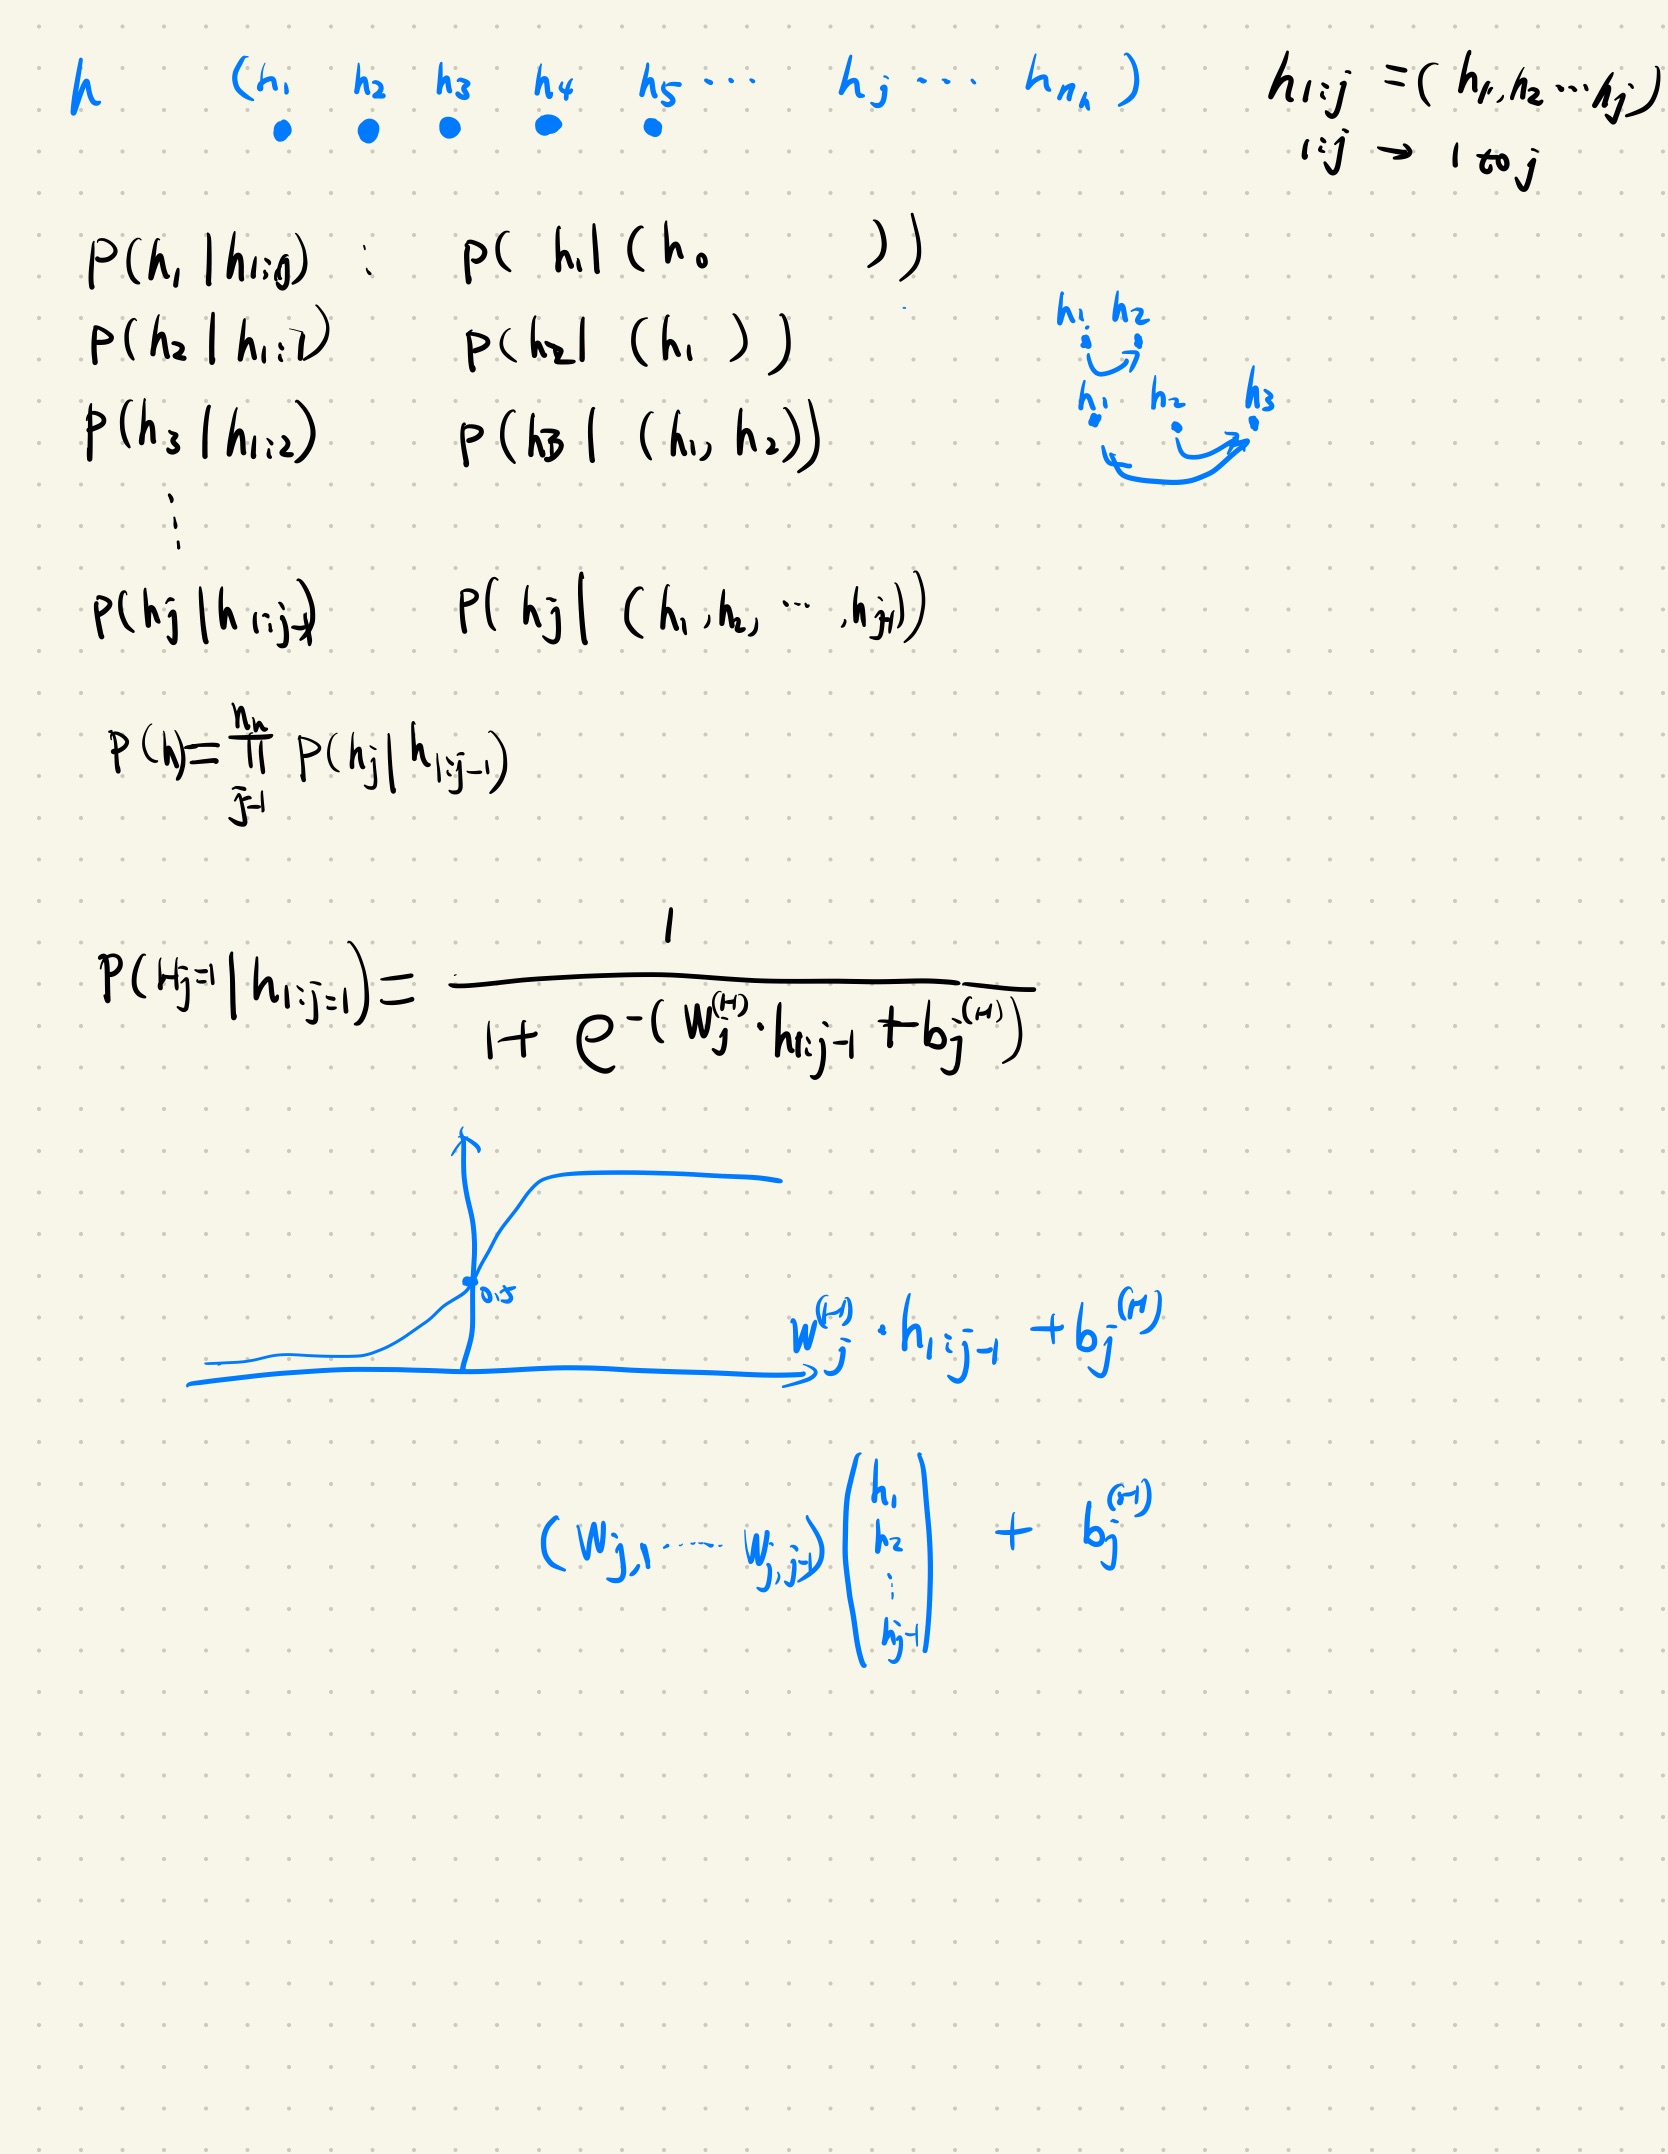 h (h₁ h₂ h₃ h₄ h₅ ··· h_j ··· h_{n_h}) h_{1:j} = (h₁, h₂ ··· h_j)
1:j → 1 to j
P(h₁ | h_{1:0}) : P(h₁ | (h₀ ))
h₁ h₂
P(h₂ | h_{1:1}) P(h₂ | (h₁ ))
h₁ h₂ h₃
P(h₃ | h_{1:2}) P(h₃ | (h₁, h₂))
⋮
P(h_j | h_{1:j-1}) P(h_j | (h₁, h₂, ···, h_{j-1}))
P(h) = ∏_{j=1}^{n_h} P(h_j | h_{1:j-1})
P(H_j=1 | h_{1:j=1}) = 1 / (1 + e^{-(W_j^{(H)} · h_{1:j-1} + b_j^{(H)})})
0.5
W_j^{(H)} · h_{1:j-1} + b_j^{(H)}
(W_{j,1} ··· W_{j,j-1}) (h₁ h₂ ⋮ h_{j-1}) + b_j^{(H)}